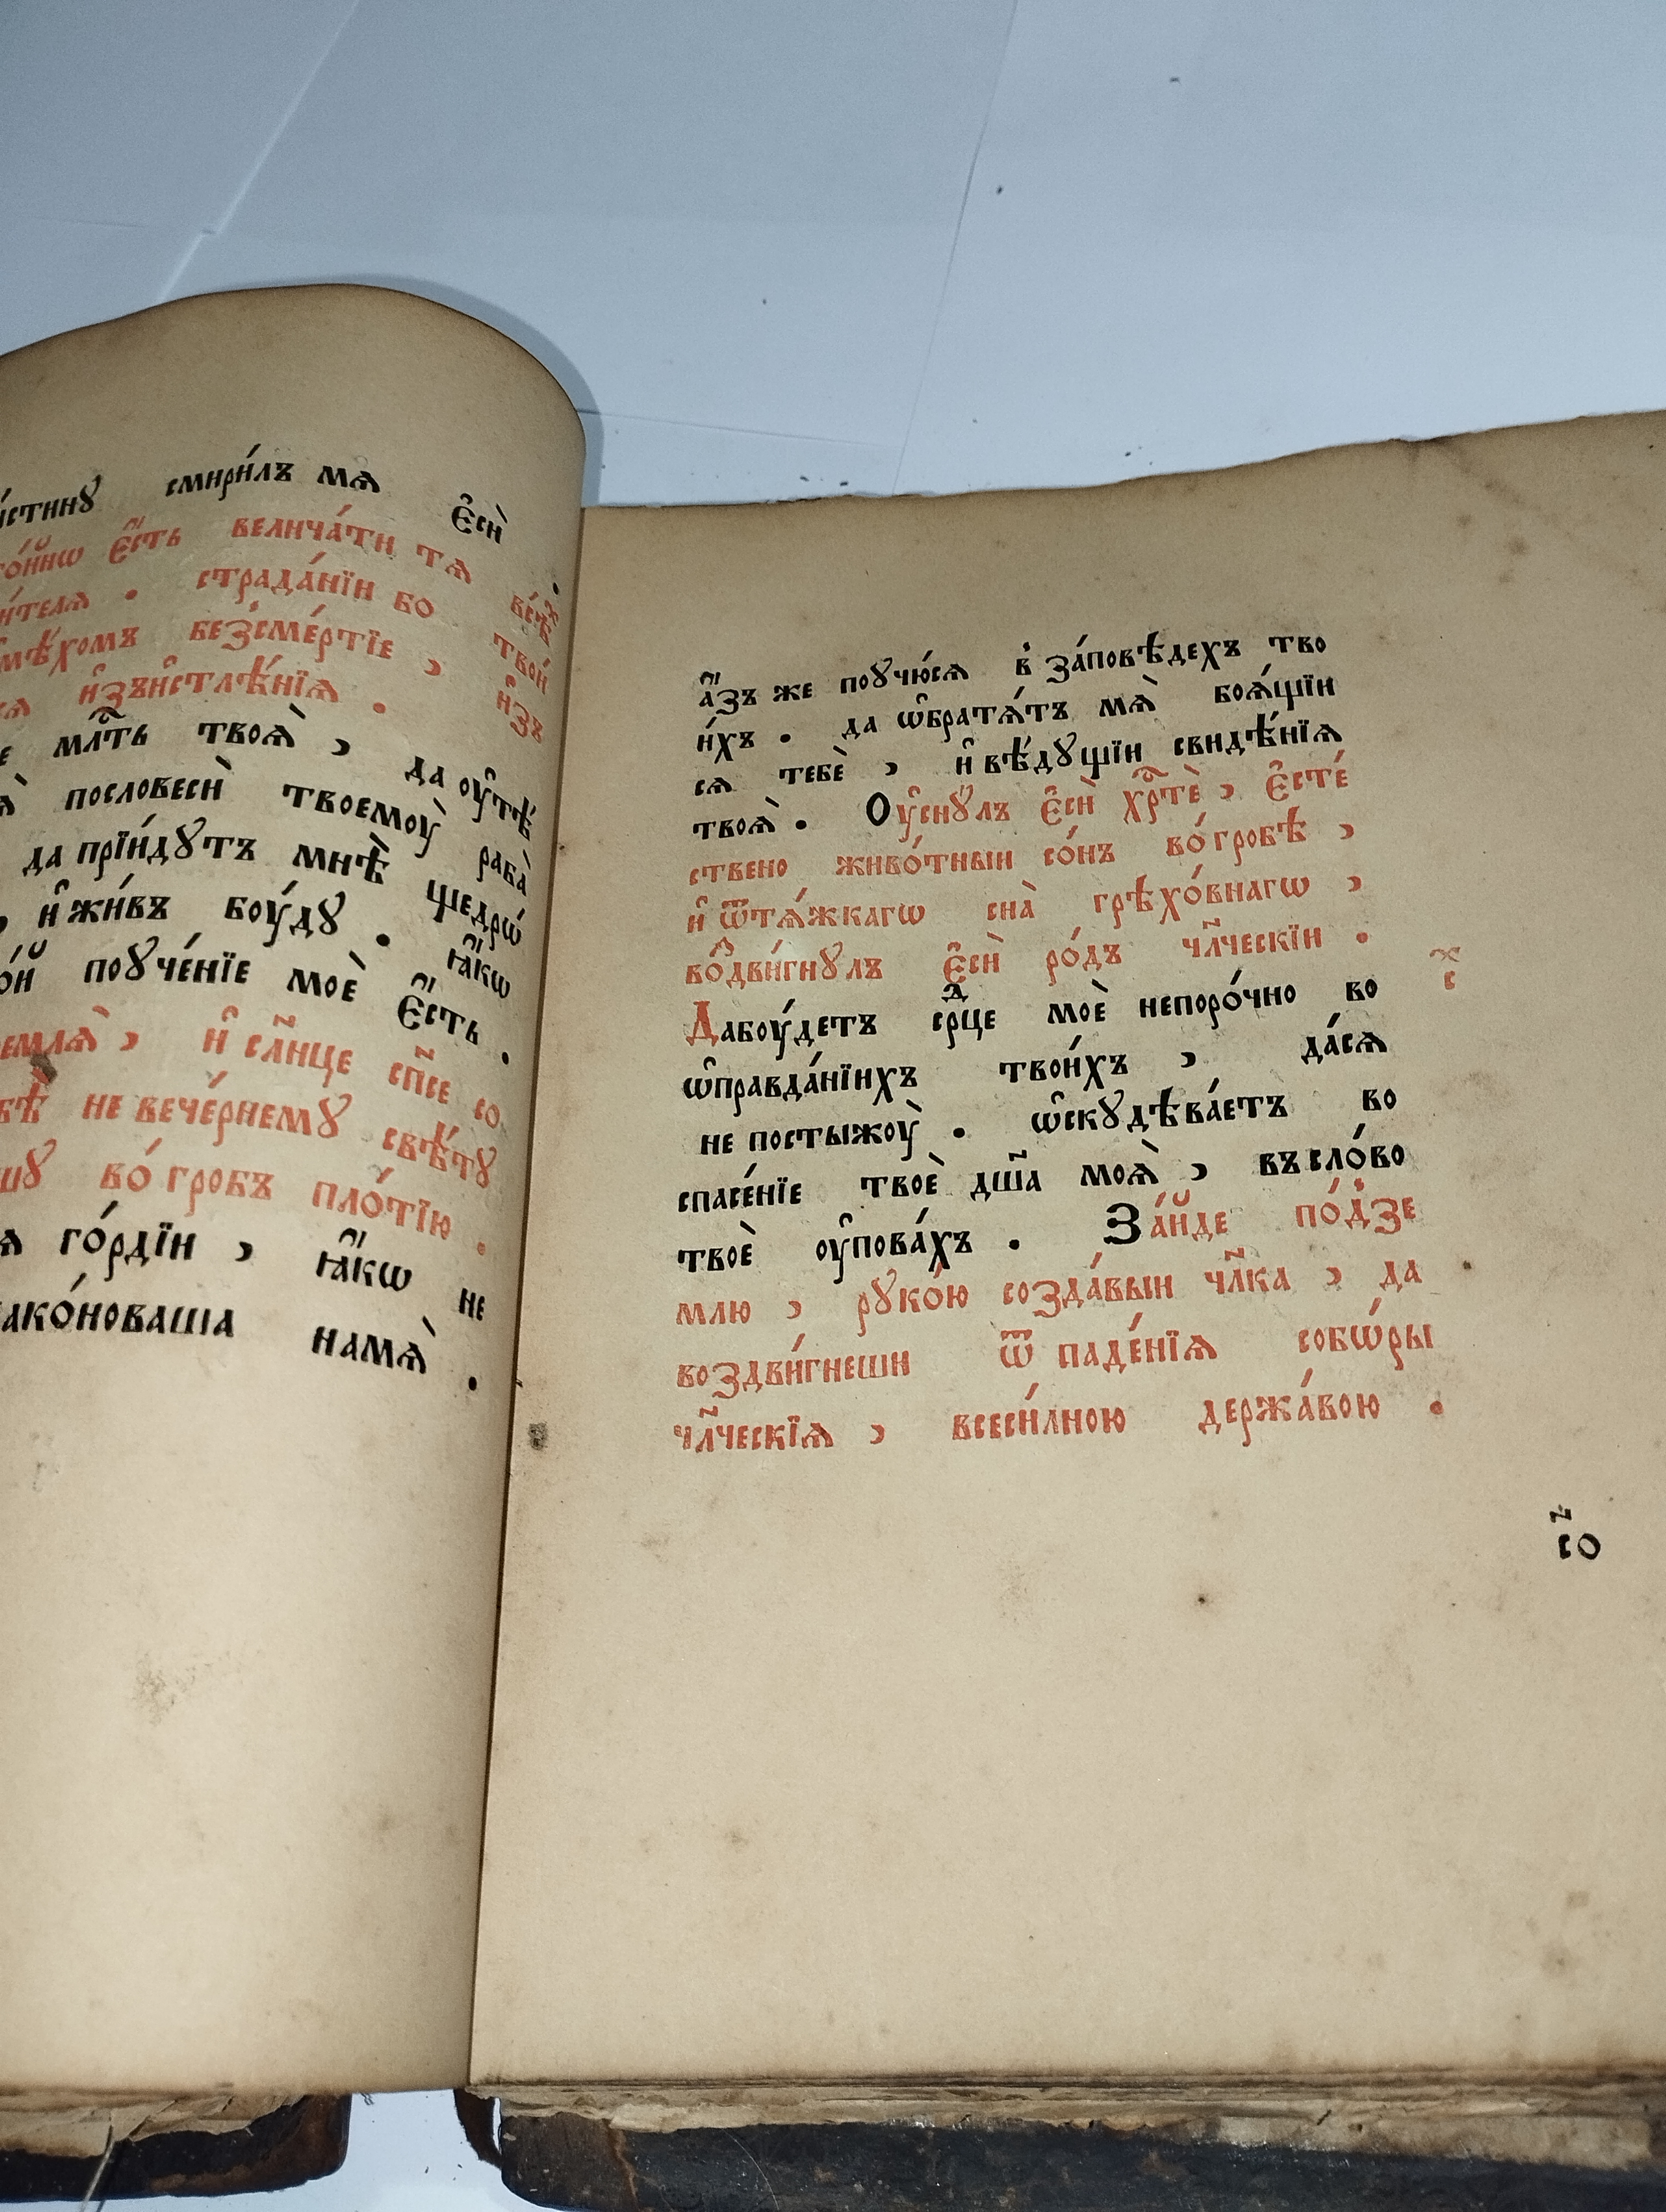 смири́лъ мѧ є҆сѝ
є҆́сть велича́ти тѧ
страда́нїи бо твои́
безсме́ртїе , и҆зъ
и҆зъистлѣ́нїѧ .
мл҃ть твоѧ̀ , да ᲂу҆тѣ́
пословесѝ твоемꙋ̀ рабѐ
да прїи́дꙋтъ мнѣ̀ щедрѡ́
, и҆ жи́въ бꙋ́дꙋ . ꙗ҆́кѡ
поꙋче́нїе моѐ є҆́сть .
, и҆ сл҃нце сп҃се со
не вече́рнемꙋ свѣ́тꙋ
во́ гробъ пло́тїю .
го́рдїи , ꙗ҆́кѡ не
намѧ̀ .
а҆́зъ же поꙋчю́сѧ в̾ за́повѣдехъ тво
и́хъ . да ѡ҆братѧ́тъ мѧ̀ боѧ́щїи
сѧ тебѐ , и҆ вѣ́дꙋщїи свидѣ́нїѧ
твоѧ̀ . Оу҆снꙋ́лъ є҆сѝ хрⷭ҇тѐ , є҆стє́
ствено живо́тныи со́нъ во́ гробѣ ,
и҆ ѿтѧ́жкагѡ сна̀ грѣхо́внагѡ ,
во́здви́гнꙋлъ є҆сѝ ро́дъ чл҃ческїи .
Дабꙋ́детъ срⷣце моѐ непоро́чно во
ѡ҆правда́нїихъ твои́хъ , да́сѧ
не постыжꙋ̀ . ѡ҆скꙋдѣва́етъ во
спасе́нїе твоѐ дш҃а моѧ̀ , въ сло́во
твоѐ ᲂу҆пова́хъ . За́йде по́д̾зе
млю , рꙋко́ю созда́выи чл҃ка , да
воздви́гнеши ѿ паде́нїѧ собѡ́ры
чл҃ческїѧ , всеси́лною держа́вою .
со҃